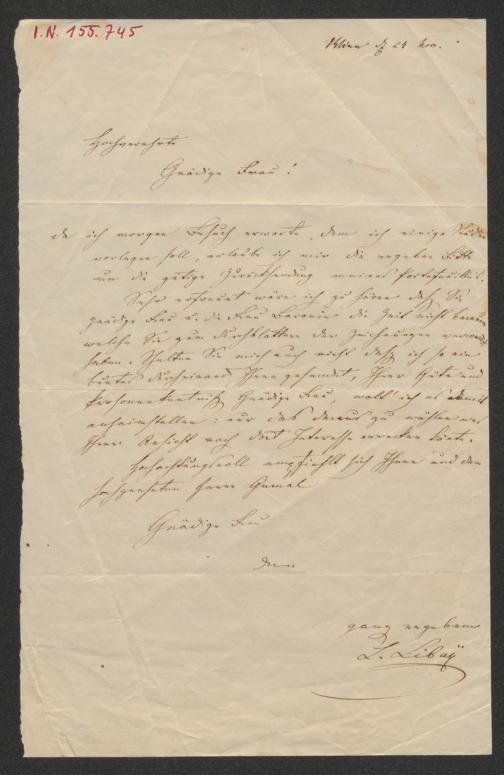 I.N. 155.745
Wien d 24 Nov.
Hochverehrte
Gnädige Frau!
da ich morgen Besuch erwarte, dem ich einige Studien
vorlegen soll, erlaube ich mir die ergebene Bitte
um die gütige Zurücksendung meines Portefeuilles.
Sehr erfreuet wäre ich zu hören daß Sie
gnädige Frau u. die Frau Baronin die Zeit nicht bereuen
welche Sie zum durchblättern der Zeichnungen verwendet
haben. Halten Sie mich auch nicht daß ich so ein
buntes durcheinand Ihnen gesendet, Ihrer Güte und
Personenkentniß Gnädige Frau, wollt' ich es
anheimstellen: nur das daraus zu wählen was
Ihrer Ansicht nach dort Interesse erwecken könte.
Hochachtungsvoll empfiehlt sich Ihnen und dem
hochgeehrten Herrn Gemal
Gnädige Frau
den
ganz ergebene
L. Libaÿ